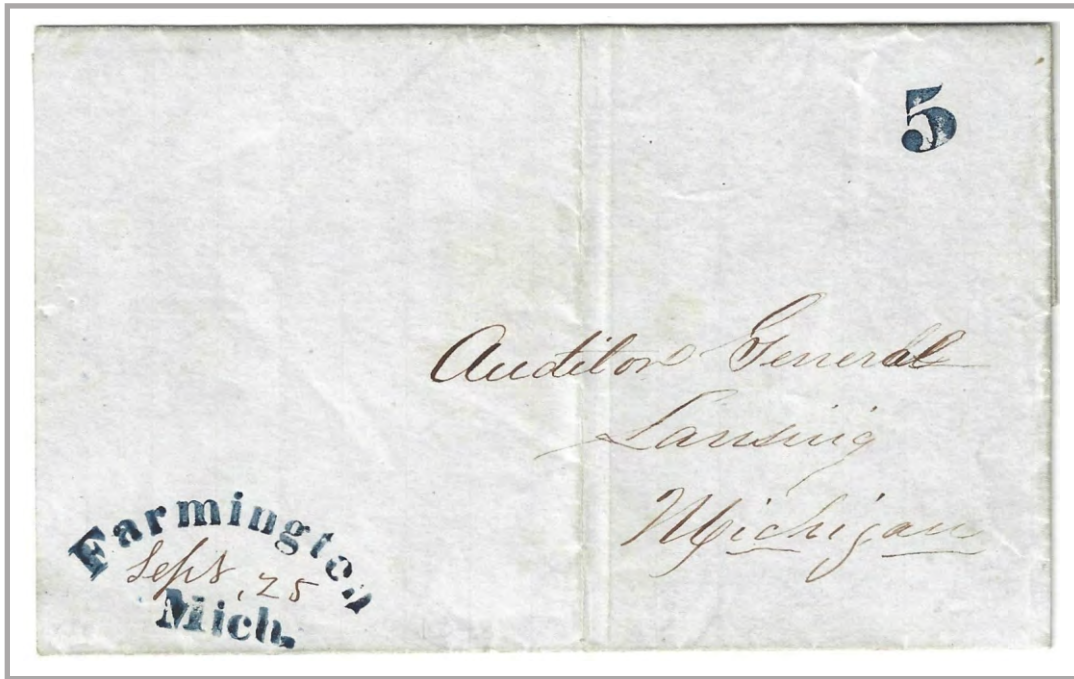 5
Auditor General
Lansing
Michigan
Farmington
Sept, 25
Mich.